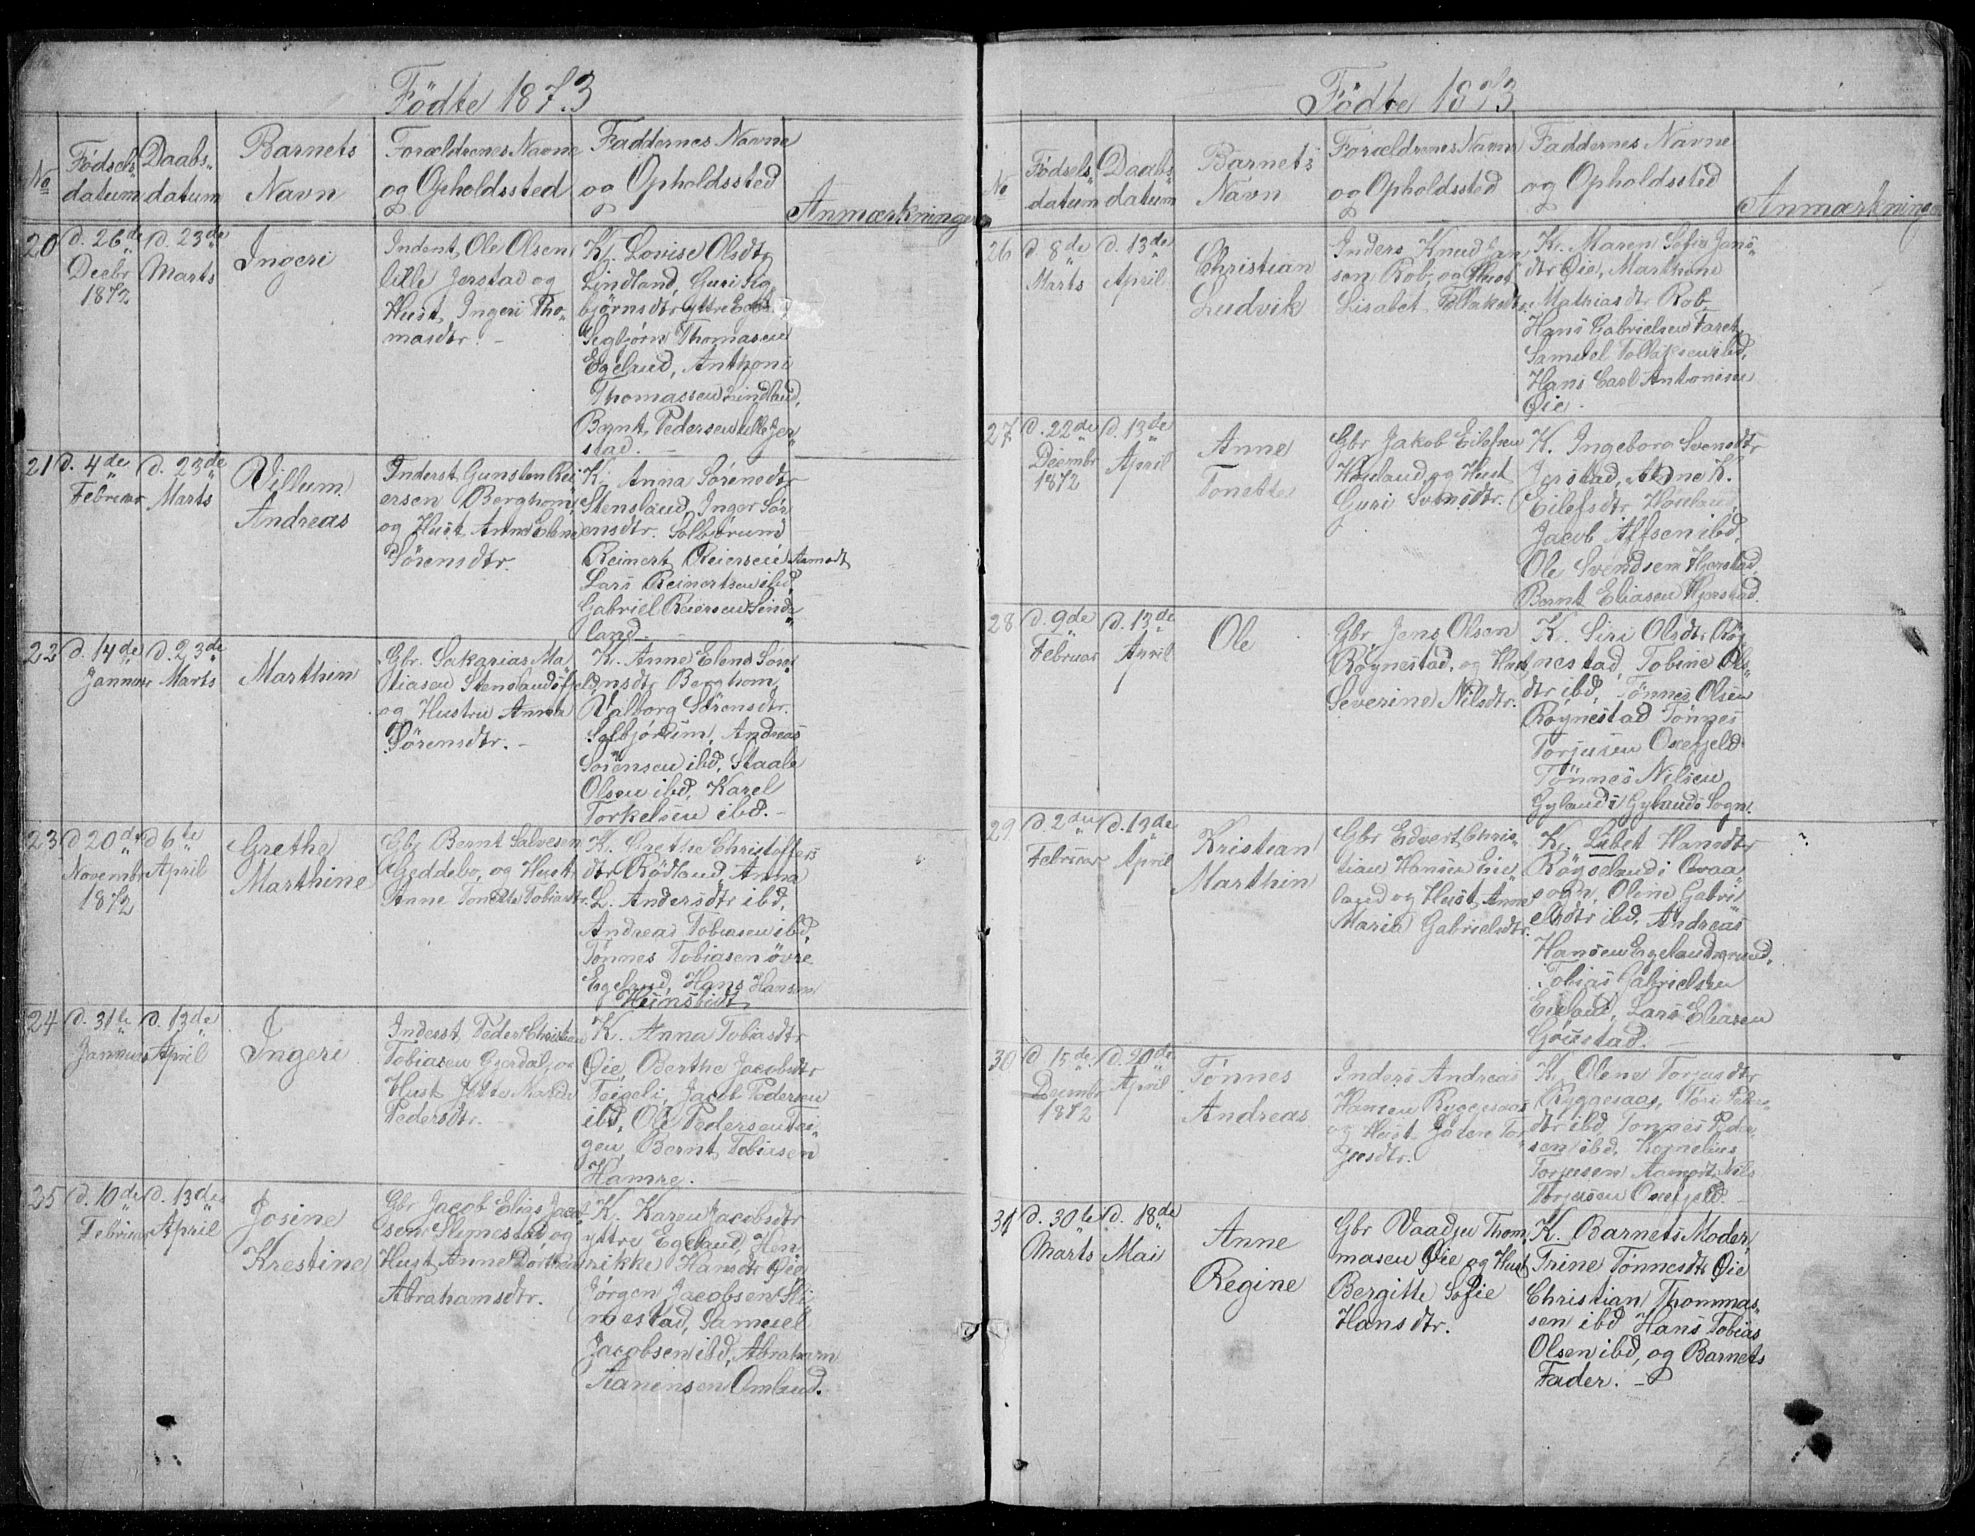 Födte 1873
No
Födsels-
datum
Daabs-
datum
Barnets
Navn
Forældrenes Navne
og Opholdssted
Faddernes Navne
og Opholdssted
Anmærkninger
20
d. 26de
Decbr
1872
d. 23de
Marts
Ingeri
Inderst Ole Olsen
lille Jerstad og
Hust. Ingeri Tho-
masdtr. -
K. Lovise Olsdtr
Lindland, Guri Sig
bjørnsdtr Yttre
Segbjørn Thomasen
Egeland, Anthoni
Thomassen Lindland,
Bernt Pedersen lille Jer-
stad. -
21
d. 4de
Februar
d. 23de
Marts
Villum
Andreas
Inderst Gunsten Rei
ersen Berghom,
og Hust. Anne Elene
Sörensdtr.
K. Anna Sörensdtr
Stensland, Inger Sör
ensdtr. Solbjørum
Reinert Reiersen Aamodt
Lars Reinertsen ibd,
Gabriel Reiersen Linde
land. -
22
d. 14de
Januar
d. 23de
Marts
Marthin
Gbr. Sakarias Ma
tiasen Stenslandsfjeld
og Hustru Anna
Sörensdtr. -
K. Anne Elene Sör
ensdtr Berghom,
Valborg Sörensdtr.
Solbjörum, Andreas
Sörensen ibd, Staale
Olsen ibd, Karel
Torkelsen ibd. -
23
d 20de
Novembr
1872
d 6te
April
Grethe
Marthine
Gbr Bernt Salvesen
Geddebo, og Hust.
Anne Tonette Tobiasdtr.
K. Grethe Christoffers
dtr Rödland, Anna
L. Andersdtr ibd,
Andreas Tobiasen ibd,
Tönnes Tobiasen övre
Egeland, Hans Hansen
24
d. 31te
Januar
d. 13de
April
Ingeri
Inderst Peder Christian
Tobiasen Gjerdal, og
Hust.
Pedersdtr.
K. Anna Tobiasdtr
Öie, Berthe Jacobsdtr
Teigeli, Jacob Pedersen
ibd, Ole Pedersen Tei-
gen, Bernt Tobiasen
Hamre. -
25
d. 10de
Februar
d. 13de
April
Josine
Krestine
Gbr Jacob Elias Jacob
sen Slimestad, og
Hust. Anne Dorthea
Abrahamsdtr.
K. Karen Jacobsdtr
yttre Egeland, Hen
rikke Hansdtr Öie
Jørgen Jacobsen Sli-
mestad, Samuel
Jacobsen ibd, Abraham
Omland.
Födte 1873
No
Födsels-
datum
Daabs-
datum
Barnets
Navn
Forældrenes Navne
og Opholdssted
Faddernes Navne
og Opholdssted
Anmærkninger
26
d. 8de
Marts
d. 13de
April
Christian
Ludvik
Inders. Knud Jan
sen Rob, og Hust
Lisabet Tollaksdtr.
K. Maren Sofie Jans-
dtr Öie, Marthene
Mathiasdtr Rob
Hans Gabrielsen Faret,
Samuel Tollaksen ibd,
Hans Carl Antonisen
Öie -
27
d. 22de
Decembr
1872
d. 13de
April
Anne
Tonette
Gbr Jakob Eilefsen
Houland og Hust
Guri Svensdtr.
K. Ingeborg Svensdtr
Jerstad, Anne K.
Eilefsdtr Houland,
Jacob Alfsen ibd,
Ole Svendsen Hjerstad,
Bernt Eliasen Hjerstad.
28
d. 9de
Februar
d. 13de
April
Ole
Gbr, Jens Olsen
Røgnestad, og Hust
Severine Nilsdtr.
K. Siri Olsdtr Røg
nestad, Tobine Ols-
dtr ibd, Tönnes Olsen
Røgnestad Tönnes
Torjusen Oxefjeld
Tönnes Nilsen
Gyland i Gylands Sogn.
29
d. 2den
Februar
d. 13de
April
Kristian
Marthin
Gbr Edvert Chris-
tian Hansen Eie
land og Hust. Anne
Marie Gabrielsdtr.
K. Lisbet Hansdtr
Røgseland i Qvaas
sogn, Oline Gabri
elsdtr ibd. Andreas
Hansen Egelandsgrund,
Tobias Gabrielsen
Eieland, Lars Eliasen
30
d 15de
Decembr
1872
d. 20de
April
Tønnes
Andreas
Inders Andreas
Hansen Ryggesaas
og Hust Tor
jusdtr.
K. Olene Torjusdtr
Ryggesaas,
dtr ibd, Tönnes Peder-
sen ibd. Kornelius
Torjusen Aamodt, Nils
Torjusen Oxefjeld. -
31
d. 30te
Marts
d. 18de
Mai
Anne
Regine
Gbr Vaadju Thom
masen Öie og Hust
Bergitte Sofie
Hansdtr.
K. Barnets Moder,
Trine Tønnesdtr Öie
Christian Thommas-
sen ibd Hans Tobias
Olsen ibd, og Barnets
Fader. -